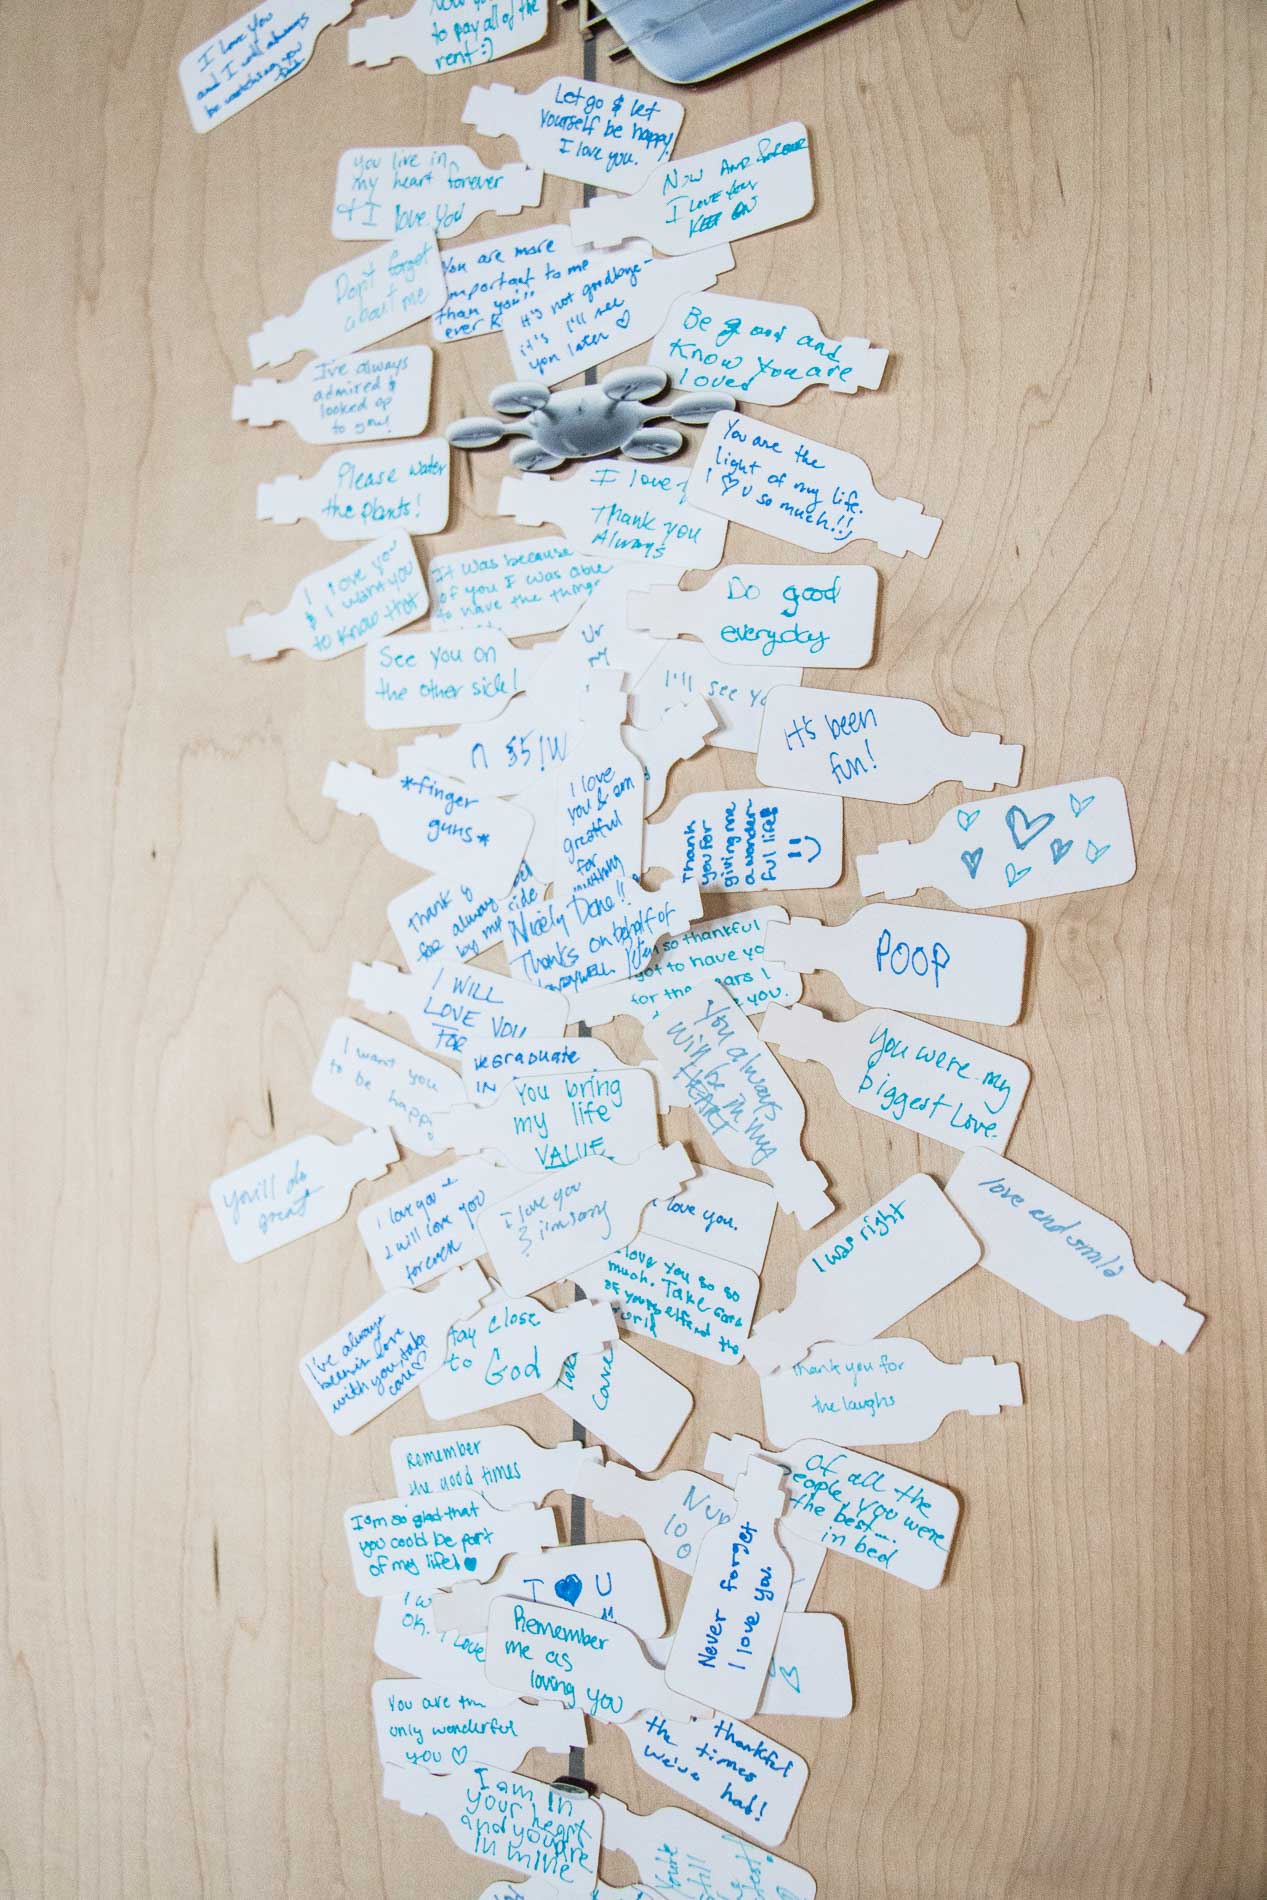 I love you
and I will always
be watching you
Now you
to pay all of the
rent :)
Let go & let
yourself be happy.
I love you.
you live in
my heart forever
& I love you
Now and forever
I love you
KEEP ON
Don't forget
about me
You are more
important to me
than you'll
ever K
it's not goodbye-
it's I'll see
you later ♡
Be good and
Know you are
loved
I've always
admired &
looked up
to you!
You are the
light of my life.
I ♡ U so much!!
Please water
the plants!
I love
Thank you
Always
I love you
& I want you
to know that
It was because
of you I was able
to have the things
Do good
everyday
See you on
the other side!
Ur
my
I'll see yo
It's been
fun!
*finger
guns*
I love
you & am
grateful
for
Thank
you for
giving me
a wonder
ful life!
Thank y
for always
by my side
Nicely Done!!
Thanks on behalf of
so thankful
got to have yo
for the
ears I
you.
POOP
I WILL
LOVE YOU
FOR
You always
will be in my
HEART
You were my
biggest love.
I want you
to be happy
Graduate
IN
You bring
my life
VALUE
You'll do
great
I love you
I will love you
forever
I love you
& i'm sorry
I love you.
love and smile
I was right
love you so so
much. Take care
of yourself and the
world
I've always
been in love
with you, take
care ♡
tay close
to God
care
Thank you for
the laughs
Remember
the good times
Of all the
people you were
the best...
in bed
I am so glad that
you could be part
of my life! ♥
I ♥ U
Never forget
I love you.
I w
OK. I love
Remember
me as
loving you
You are the
only wonderful
you ♡
thankful
the times
we've had!
I am in
your heart
and you are
in mine
You're
still